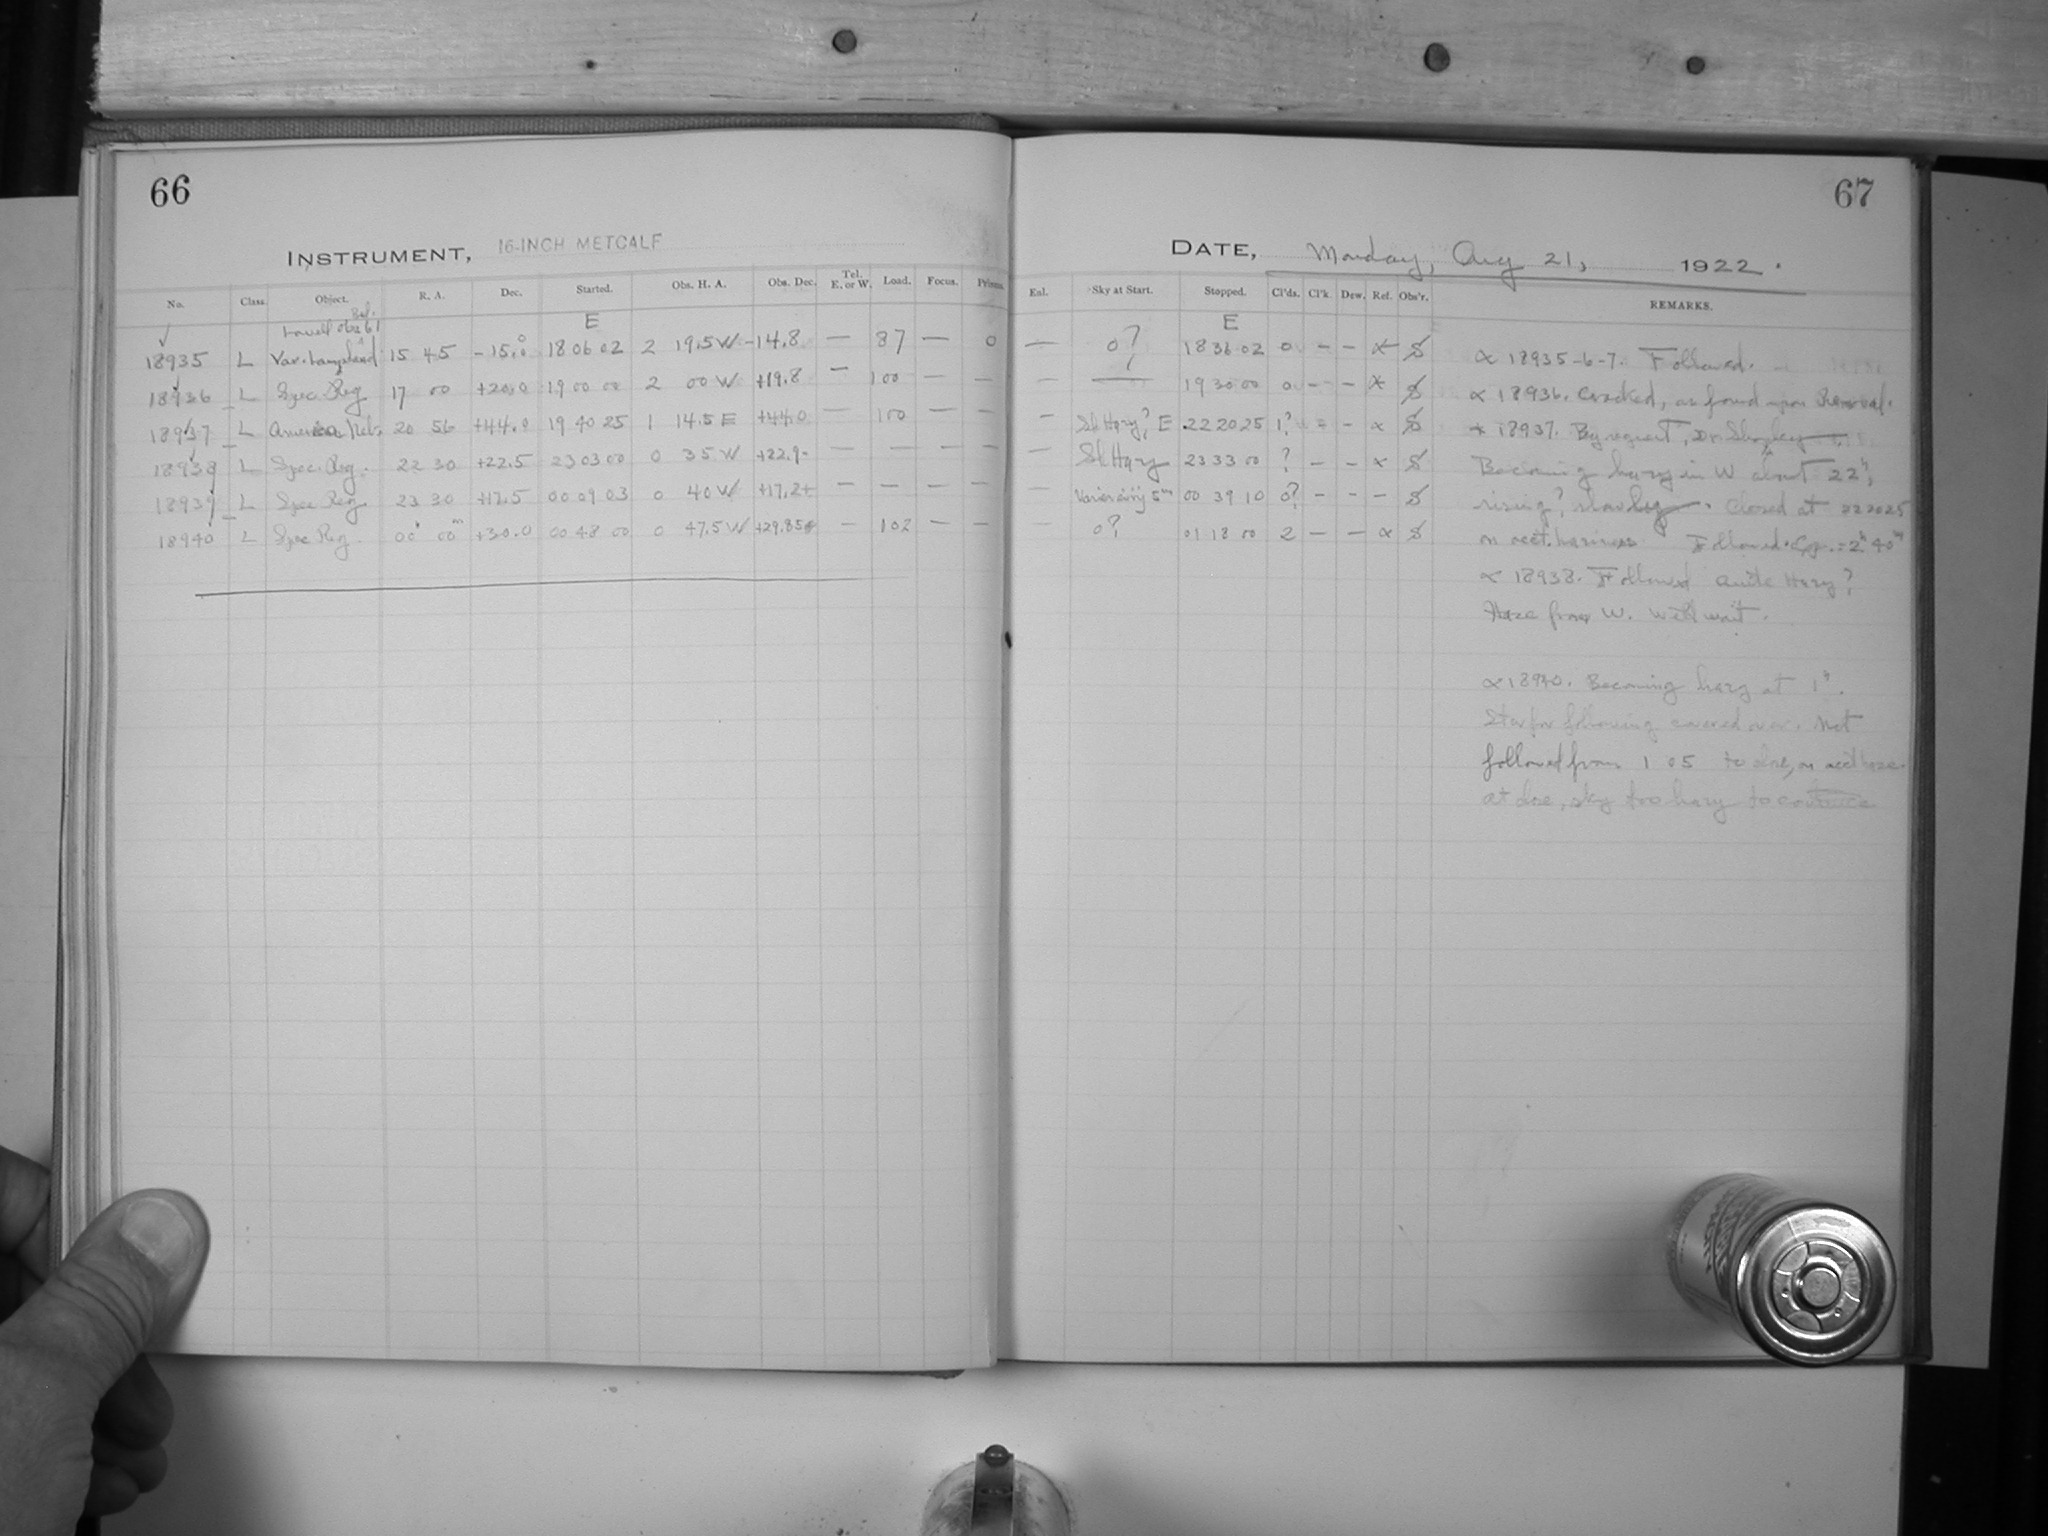 66
67
INSTRUMENT, 16-INCH METCALF
DATE, Monday, Aug 21, 1922.
No. Class. Object. R. A. Dec. Started. Obs. H. A. Obs. Dec. Tel. E. or W. Load. Focus. Prisms. Enl. Sky at Start. Stopped. Cl'ds. Cl'k. Dew. Ref. Obs'r. REMARKS.
E E
18935 L Var. Lampland 15 45 -15.0 18 06 02 2 19.5 W -14.8 — 87 — 0 — 0? 18 36 02 0 — — x S
18936 L Spec. Reg. 17 00 +20.0 19 00 00 2 00 W +19.8 — 100 — — — 19 30 00 0 — — x S
18937 L America Neb. 20 56 +44.0 19 40 25 1 14.5 E +44.0 — 100 — — — Sl. Hazy? E 22 20 25 1? — — x S
18938 L Spec. Reg. 22 30 +22.5 23 03 00 0 35 W +22.9 — — — — — Sl. Hazy 23 33 00 ? — — x S
18939 L Spec Reg 23 30 +17.5 00 09 03 0 40 W +17.2+ — — — — — 00 39 10 0? — — — S
18940 L Spec Reg. 00h 00m +30.0 00 48 00 0 47.5 W +29.85 — 102 — — — 0? 01 18 00 2 — — x S
x 18935-6-7. Followed.
x 18936. Cracked, as found upon removal.
x 18937. By request, Dr. Shapley
Becoming hazy in W about 22h,
rising? Closed at 22 20 25
on acct. haziness Followed. = 2h 40m
x 18938. Followed Quite Hazy?
Haze from W. Will wait.
x 18940. Becoming hazy at 1h.
Star for following covered over. Not
followed from 1 05 to close, on acct haze.
at close, sky too hazy to continue